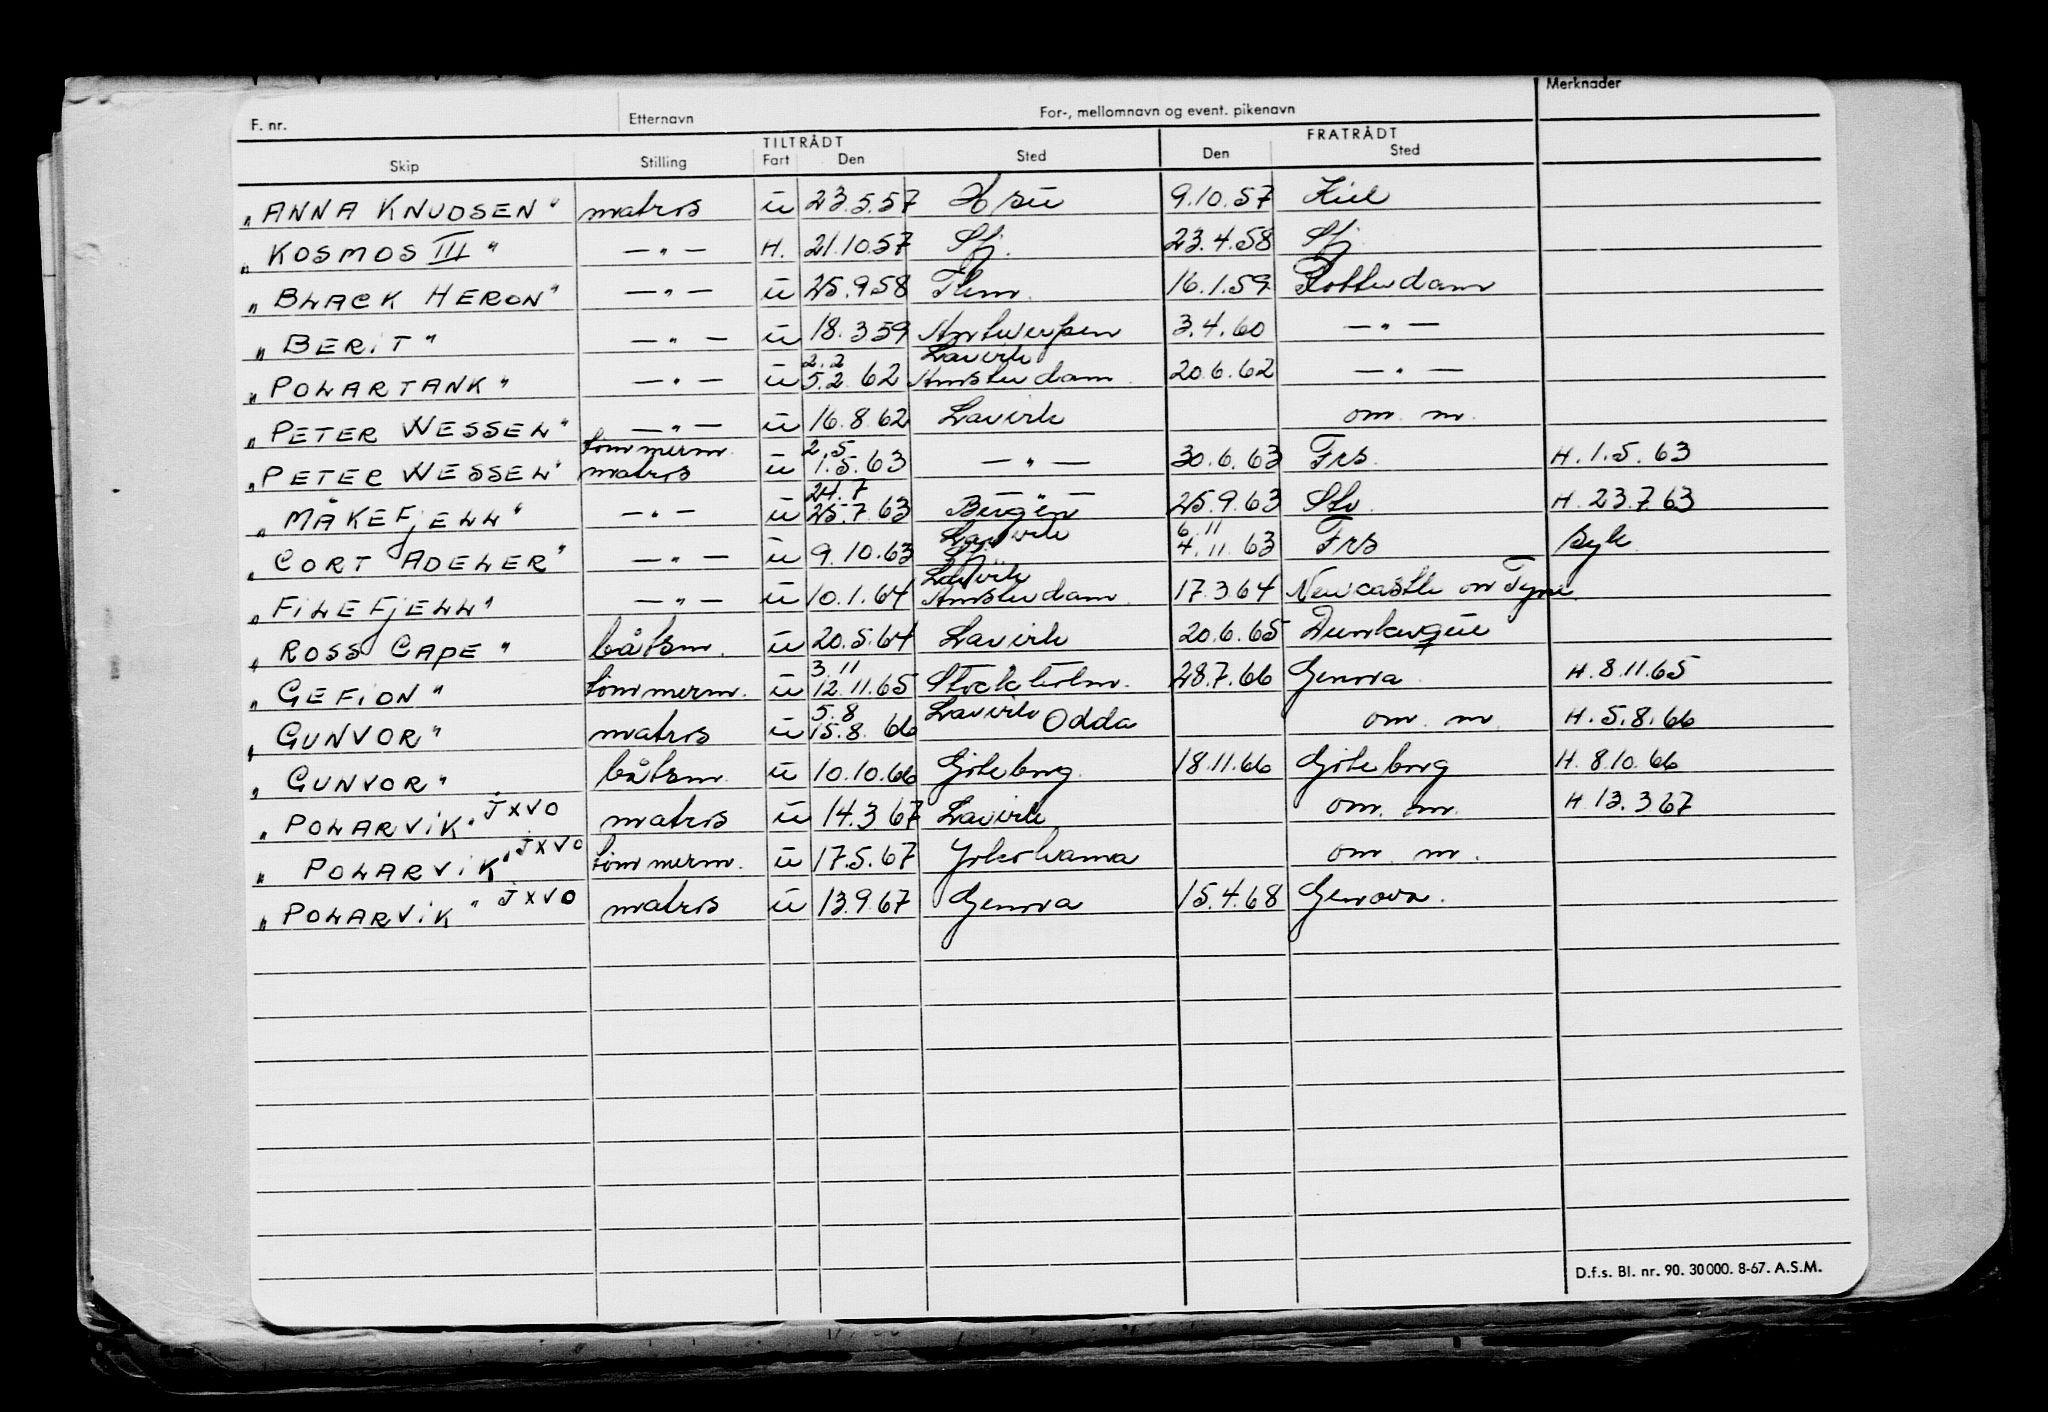 Merknader
F. nr. Etternavn For-, mellomnavn og event. pikenavn
TILTRÅDT FRATRÅDT
Skip Stilling Fart Den Sted Den Sted
"ANNA KNUDSEN" matros u 23.5.57 9.10.57 Kiel
"KOSMOS III" — " — H. 21.10.57 Sfj. 23.4.58 Sfj.
"BLACK HERON" — " — u 25.9.58 16.1.59 Rotterdam
"BERIT" — " — u 18.3.59 Antwerpen 3.4.60 — " —
2.2 Larvik
"POLARTANK" — " — u 5.2.62 Amsterdam 20.6.62 — " —
"PETER WESSEL" — " — u 16.8.62 Larvik om. m.
tømmerm. 2.5
"PETER WESSEL" matros u 1.5.63 — " — 30.6.63 Frs. H. 1.5.63
24.7 — " —
"MÅKEFJELL" — " — u 25.7.63 Bergen 25.9.63 H. 23.7.63
Larvik 6.11
"CORT ADELER" — " — u 9.10.63 4.11.63 Frs Syk
Larvik
"FILEFJELL" — " — u 10.1.64 Amsterdam 17.3.64 Newcastle on Tyne
"ROSS CAPE" båtsm. u 20.5.64 Larvik 20.6.65 Dunkerque
3.11
"GEFION" tømmerm. u 12.11.65 Stockholm. 28.7.66 Genova H. 8.11.65
5.8 Larvik
"GUNVOR" matros u 15.8.66 Odda om. m. H. 5.8.66
"GUNVOR" båtsm. u 10.10.66 Göteborg 18.11.66 Göteborg H. 8.10.66
"POLARVIK" JXVO matros u 14.3.67 Larvik om. m. H. 13.3.67
"POLARVIK" JXVO tømmerm. u 17.5.67 Yokohama om. m.
"POLARVIK" JXVO matros u 13.9.67 Genova 15.4.68 Genova.
D.f.s. Bl. nr. 90. 30000. 8-67. A.S.M.